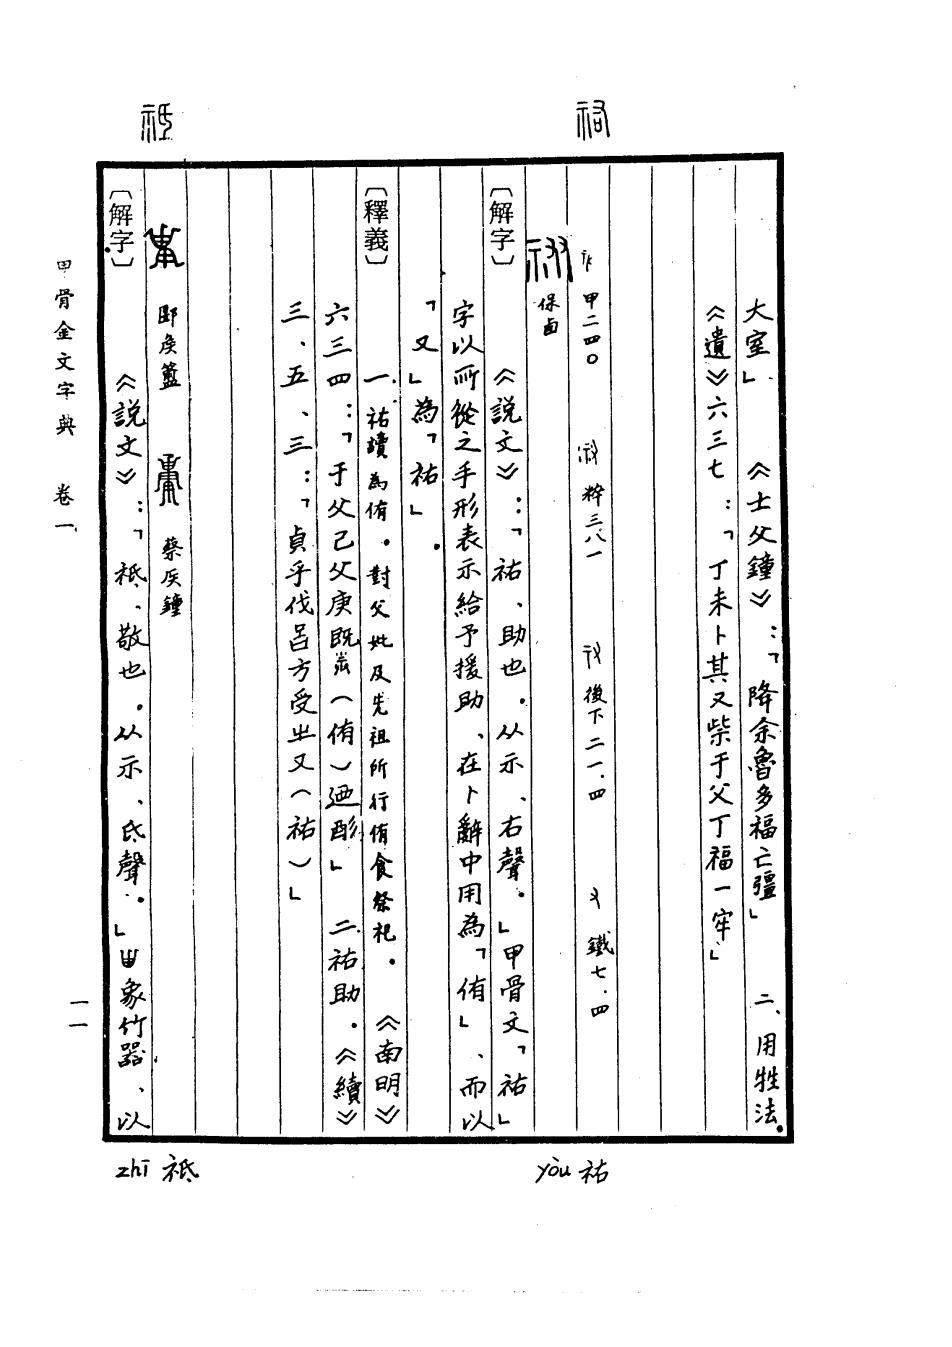 大室」　《士父鐘》：「降余魯多福亡彊」　二、用牲法.
《遺》六三七：「丁未卜其又柴于父丁福一牢」
甲二四〇　粹三八一　後下二一.四　鐵七.四
保卣
〔解字〕　《說文》：「祐、助也．从示、右聲．」甲骨文「祐」
字以所從之手形表示給予援助、在卜辭中用為「侑」、而以
「又」為「祐」．
〔釋義〕　一.祐讀為侑．對父妣及先祖所行侑食祭祀．《南明》
六三四：「于父己父庚既（侑）迺酌」　二.祐助．《續》
三、五、三：「貞乎伐呂方受㞢又（祐）」
郘矦簋　蔡矦鐘
〔解字〕　《說文》：「祗、敬也．从示、氐聲．」甾象竹器、以
yòu 祐
zhī 祗
甲骨金文字典　卷一
一一